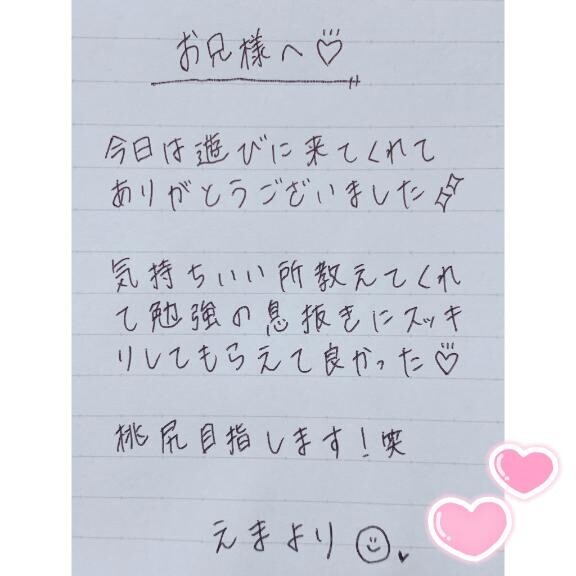 お兄様へ♡
今日は遊びに来てくれて
ありがとうございました
気持ちいい所教えてくれ
て勉強の息抜きにスッキ
リしてもらえて良かった♡
桃尻目指します！笑
えまより